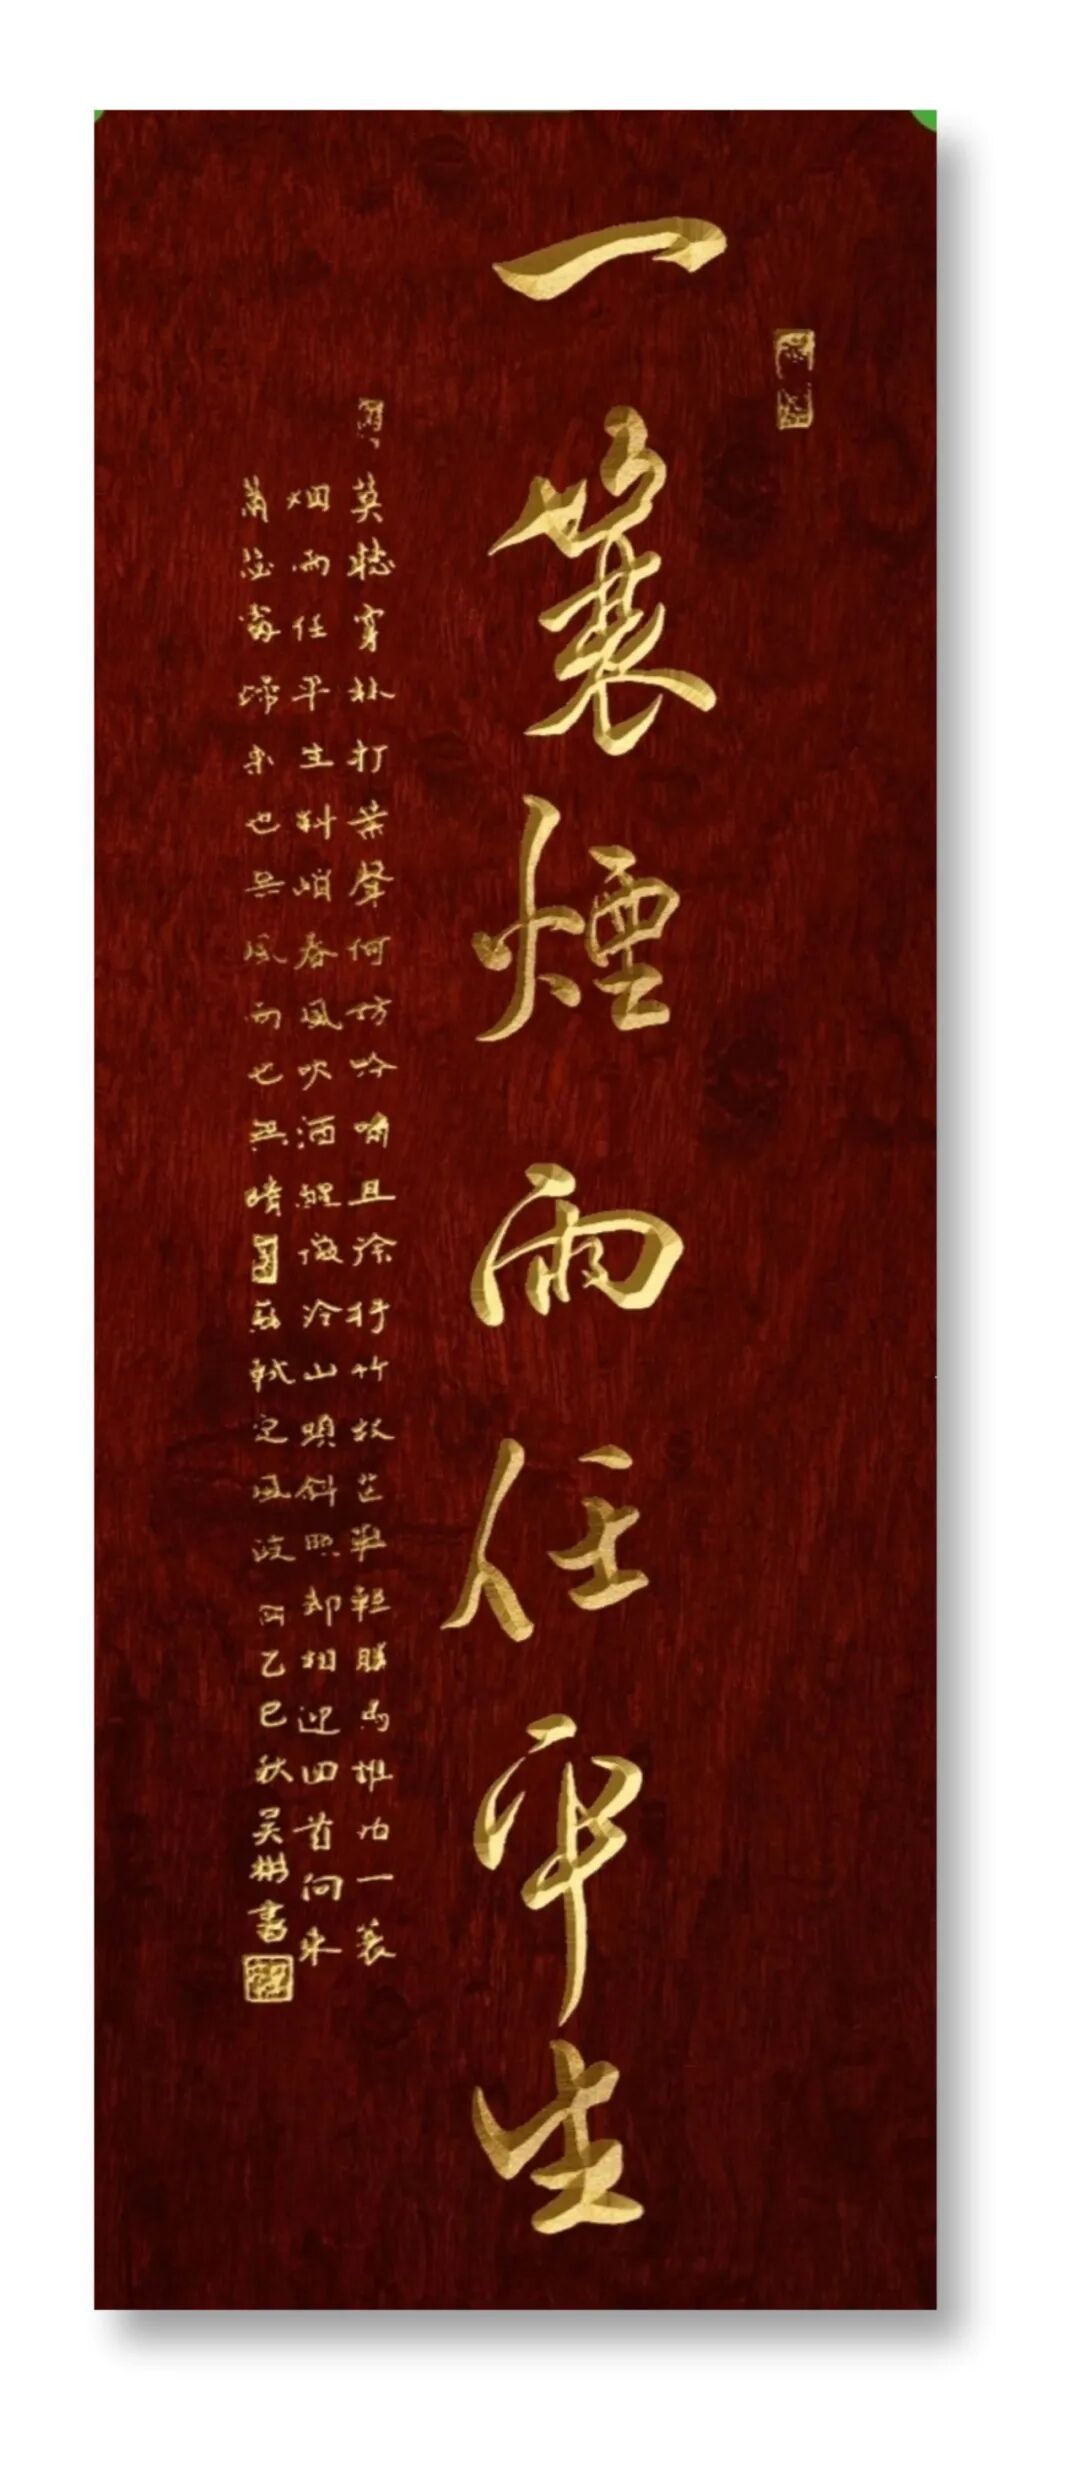 一蓑煙雨任平生
莫聽穿林打葉聲何妨吟嘯且徐行竹杖芒鞋輕勝馬誰怕一蓑
烟雨任平生料峭春風吹酒醒微冷山頭斜照却相迎回首向来
蕭瑟處歸来也無風雨也無晴
蘇軾定風波
乙巳秋吴彬書